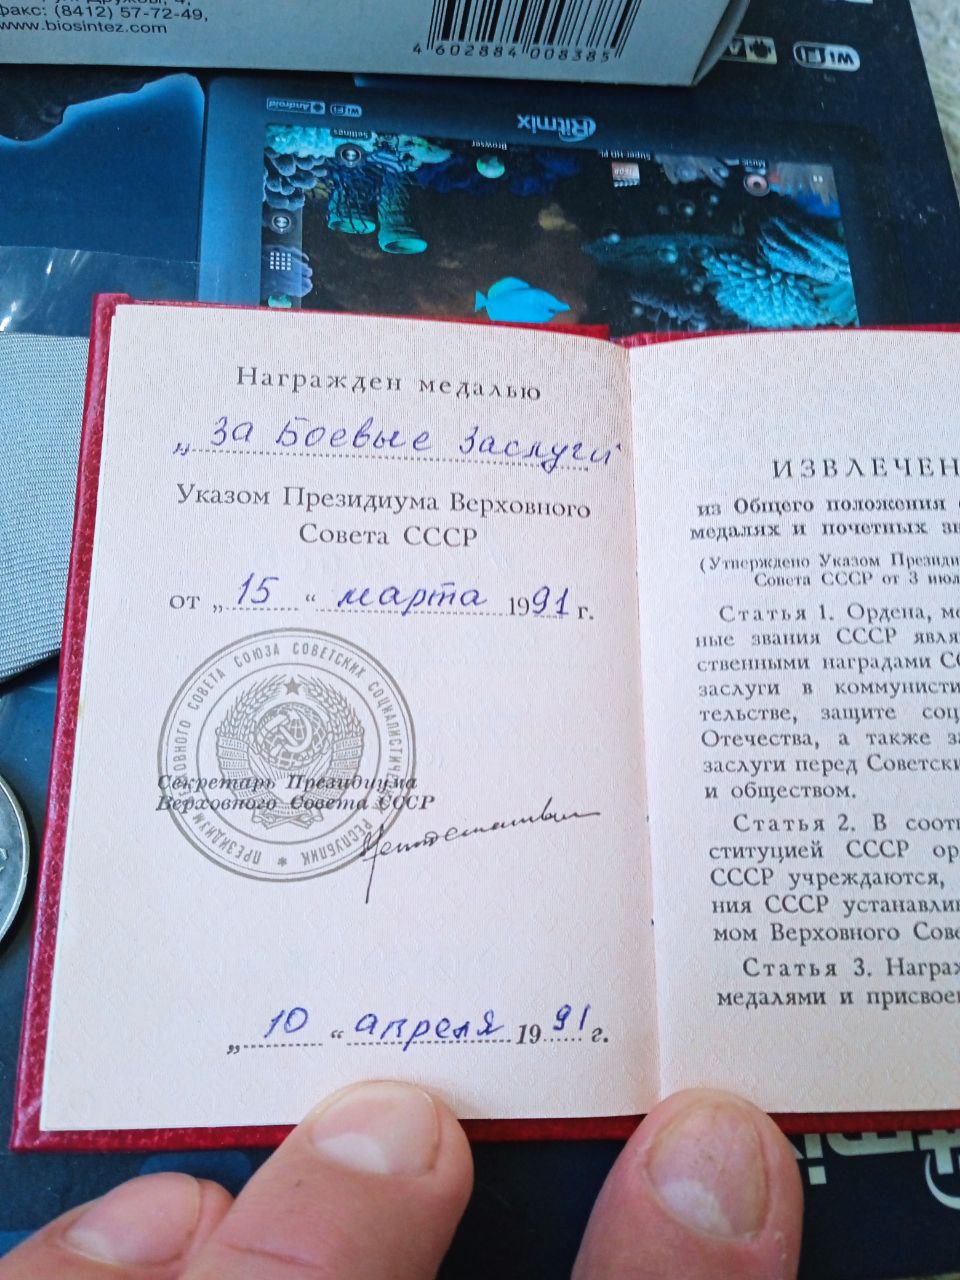 факс: (8412) 57-72-49,
www.biosintez.com
4 602884 008385
WiFi
Android
WiFi
Ritmix
Settings
Browser
Super HD Pl
Music
Награжден медалью
„За Боевые Заслуги"
Указом Президиума Верховного
Совета СССР
от „15“ марта 1991 г.
ПРЕЗИДИУМ ВЕРХОВНОГО СОВЕТА СОЮЗА СОВЕТСКИХ СОЦИАЛИСТИЧЕСКИХ РЕСПУБЛИК
Секретарь Президиума
Верховного Совета СССР
„10“ апреля 1991 г.
ИЗВЛЕЧЕН
из Общего положения о
медалях и почетных зв
(Утверждено Указом Презид
Совета СССР от 3 июл
Статья 1. Ордена, ме
ные звания СССР явля
ственными наградами СС
заслуги в коммунисти
тельстве, защите соц
Отечества, а также за
заслуги перед Советски
и обществом.
Статья 2. В соотв
ституцией СССР ор
СССР учреждаются,
ния СССР устанавлив
мом Верховного Сове
Статья 3. Награж
медалями и присвоен